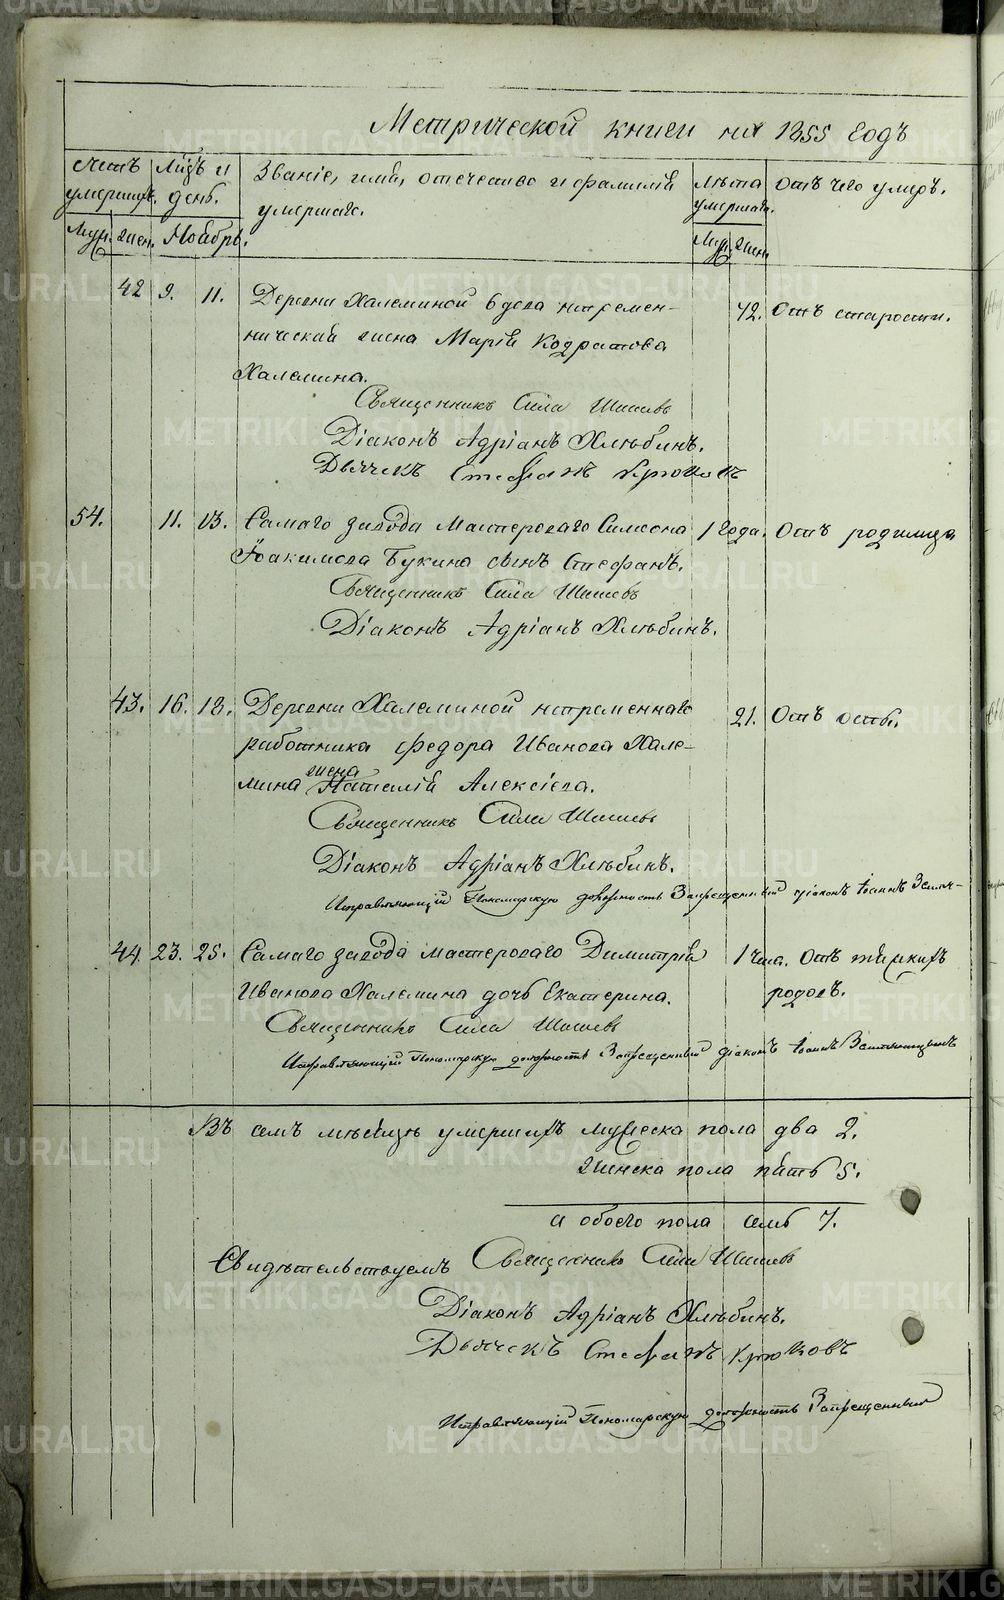 Метрической книги на 1855 годъ
Счетъ умершихъ.
Мѣсяцъ и день.
Званіе, имя, отечество и фамилія умершаго.
Лѣта умершаго.
Отъ чего умеръ.
Муж. Жен. Ноябрь. Муж. Жен.
42 9. 11. Деревни Халеминой вдова непремен-
ническая жена Марія Кодратова
Халемина.
72. Отъ старости.
Священникъ Сила Шишевъ
Діаконъ Адріанъ Хлѣбинъ.
Дьячекъ Стефанъ Крюковъ
54. 11. 13. Самаго завода Мастероваго Симеона
Іоакимова Букина сынъ Стефанъ.
1 года. Отъ родимца
Священникъ Сила Шишевъ
Діаконъ Адріанъ Хлѣбинъ.
43. 16. 18. Деревни Халеминой непременнаго
работника Федора Иванова Хале-
мина жена Наталія Алексіева.
21. Отъ оспы.
Священникъ Сила Шишевъ
Діаконъ Адріанъ Хлѣбинъ.
Исправляющій Пономарскую должность Запрещенный діаконъ Іоаннъ
44. 23. 25. Самаго завода мастероваго Димитрія
Иванова Халемина дочь Екатерина.
1 часа. Отъ тяжкихъ
родовъ.
Священникъ Сила Шишевъ
Исправляющій Пономарскую должность Запрещенный діаконъ Іоаннъ
Въ семъ мѣсяцѣ умершихъ мужеска пола два 2.
женска пола пять 5.
а обоего пола семь 7.
Свидѣтельствуемъ Священникъ Сила Шишевъ
Діаконъ Адріанъ Хлѣбинъ.
Дьячекъ Стефанъ Крюковъ
Исправляющій Пономарскую должность Запрещенный
METRIKI.GASO-URAL.RU